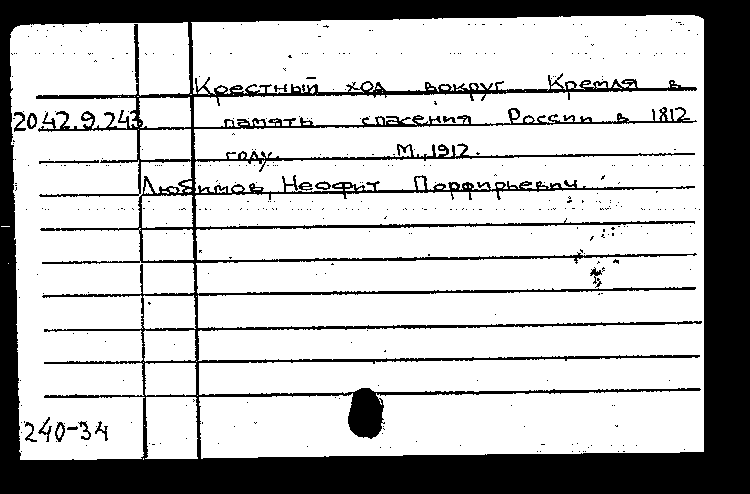 Крестный ход вокруг Кремля в
20.42.9.243. память спасения России в 1812
году. М., 1912.
Любимов, Неофит Порфирьевич.
240-34